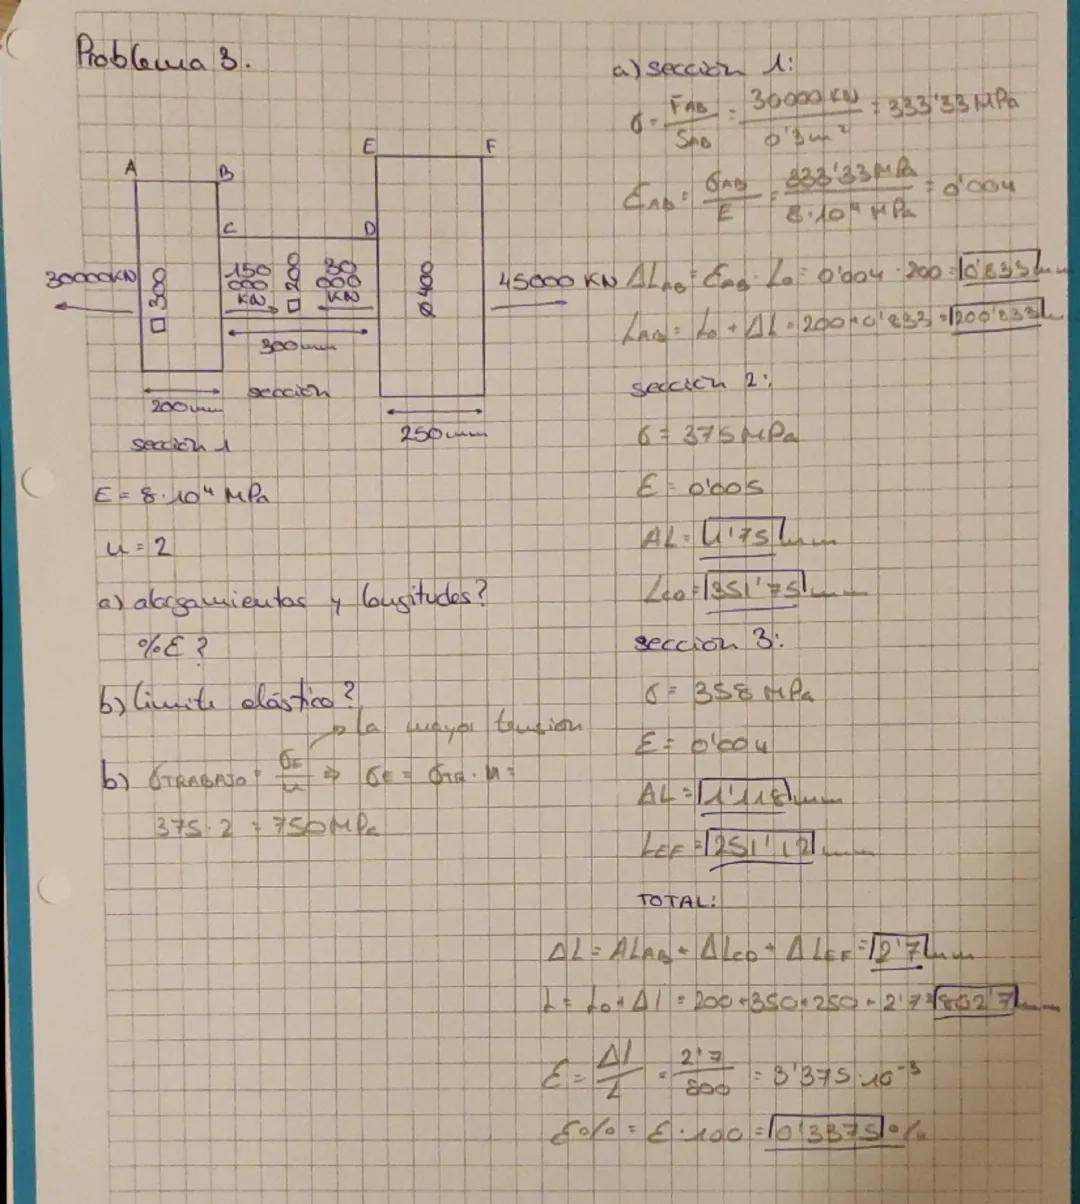 Problema 3.
A
B
C
D
E
F
30000KN
□ 300
150
000
KN
□ 200
30
000
KN
Ø 400
45000 KN
300mm
200mm
sección
250mm
sección 1
E = 8·10⁴ MPa
n = 2
a) alargamientos y longitudes?
%ε?
b) límite elástico?
la mayor tensión
b) σTRABAJO = σE/n ⇒ σE = σTR · n =
375·2 = 750MPa
a) sección 1:
σ = FAB/SAB = 30000 KN/0'3m² = 333'33 MPa
εAB = σAB/E = 333'33 MPa/8·10⁴ MPa = 0'004
ΔLAB = εAB · L0 = 0'004 · 200 = 0'833mm
LAB = L0 + ΔL = 200+0'833 = 200'833
sección 2:
σ = 375 MPa
ε = 0'005
ΔL = 1'75 mm
LCD = 351'75 mm
sección 3:
σ = 358 MPa
ε = 0'004
ΔL = 1'118 mm
LEF = 251'12 mm
TOTAL:
ΔL = ΔLAB + ΔLCD + ΔLEF = 2'7 mm
L = L0 + Δl = 200+350+250+2'7 = 802'7 mm
ε = Δl/L = 2'7/800 = 3'375·10⁻³
ε% = ε·100 = 0'3375%